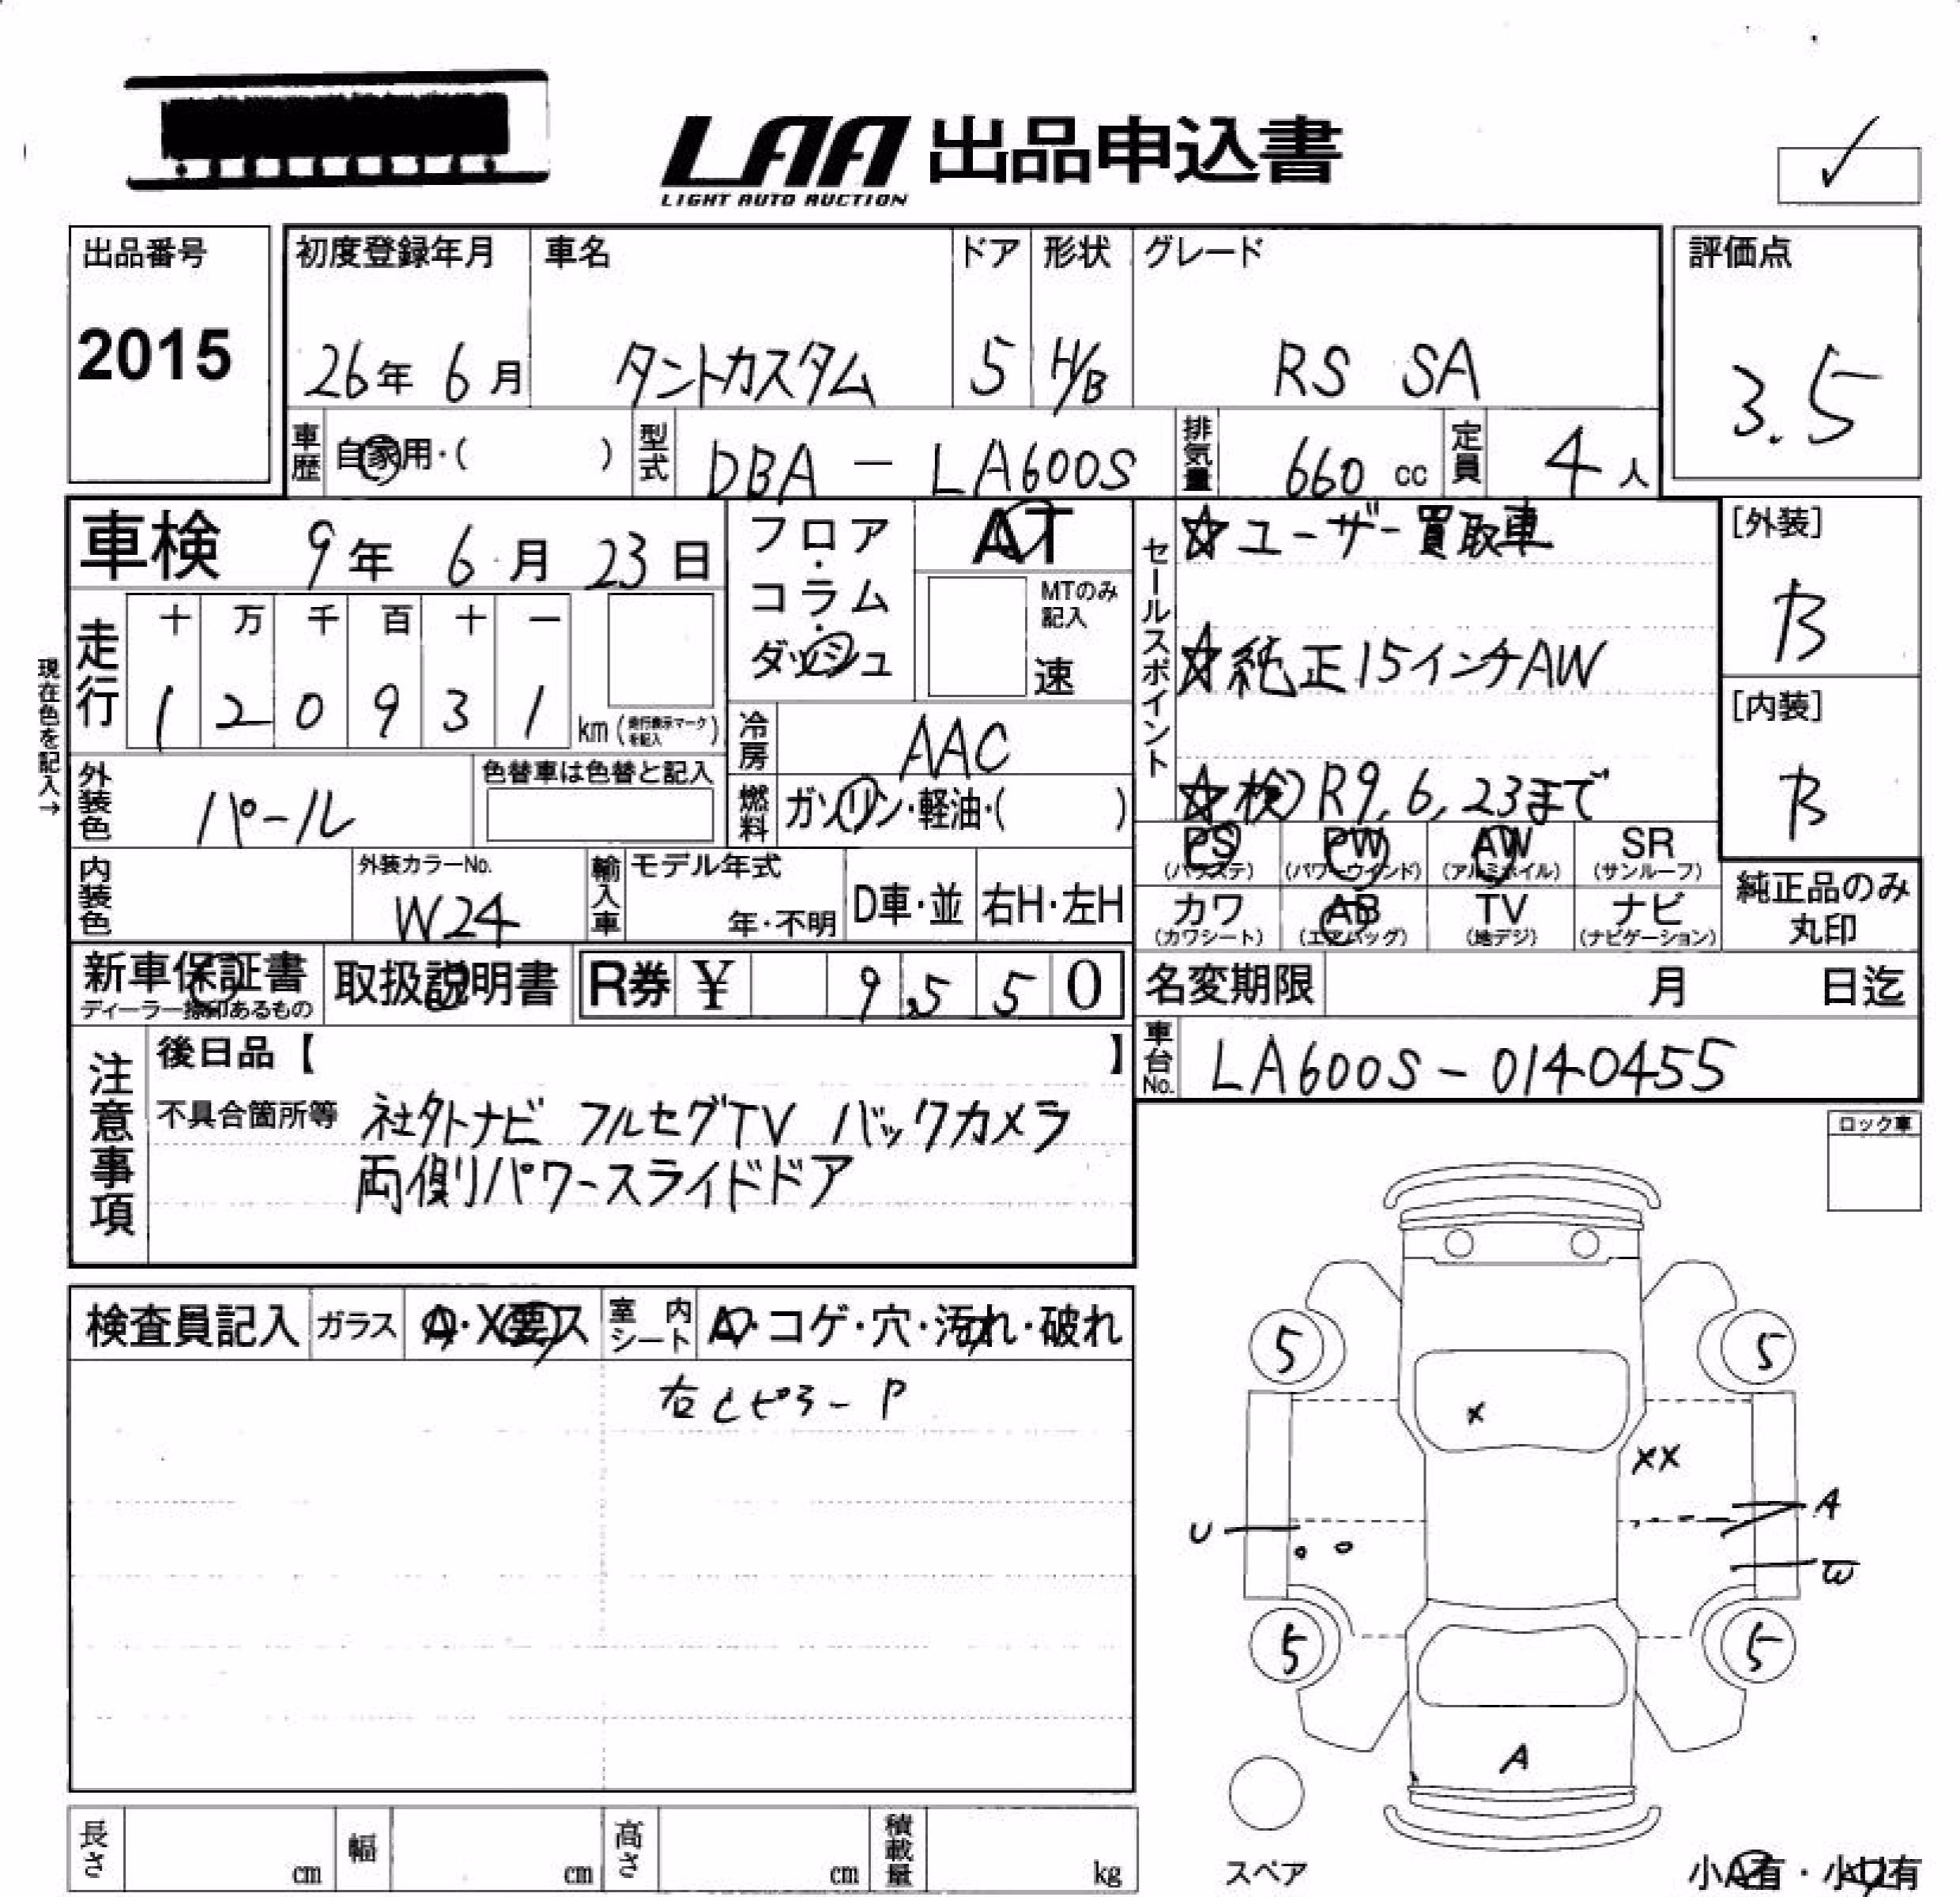 LAA 出品申込書
LIGHT AUTO AUCTION
出品番号
2015
初度登録年月 車名 ドア 形状 グレード
26年 6月 タントカスタム 5 H/B RS SA
評価点
3.5
車歴 自家用・( ) 型式 DBA - LA600S 排気量 660 cc 定員 4人
車検 9年 6月 23日
フロア・コラム・ダッシュ
AT
MTのみ記入
速
セールスポイント
☆ユーザー買取車
☆純正15インチAW
☆検)R9.6.23まで
[外装]
B
[内装]
B
現在色を記入→
走行
十 万 千 百 十 一
1 2 0 9 3 1 km (走行表示マークを記入)
冷房 AAC
外装色 パール
色替車は色替と記入
燃料 ガソリン・軽油・( )
PS (パワステ) PW (パワーウインド) AW (アルミホイル) SR (サンルーフ)
カワ (カワシート) AB (エアバッグ) TV (地デジ) ナビ (ナビゲーション)
純正品のみ
丸印
内装色
外装カラーNo.
W24
輸入車 モデル年式 年・不明 D車・並 右H・左H
新車保証書
ディーラー捺印あるもの
取扱説明書 R券 ¥ 9,550
名変期限 月 日迄
車台No. LA600S-0140455
注意事項
後日品【 】
不具合箇所等 社外ナビ フルセグTV バックカメラ
両側パワースライドドア
ロック車
検査員記入 ガラス A・X要ス 室内シート A・コゲ・穴・汚れ・破れ
右Cピラー P
5 5
X
XX
A
U
W
5 5
A
スペア
小A有・小U有
長さ cm 幅 cm 高さ cm 積載量 kg